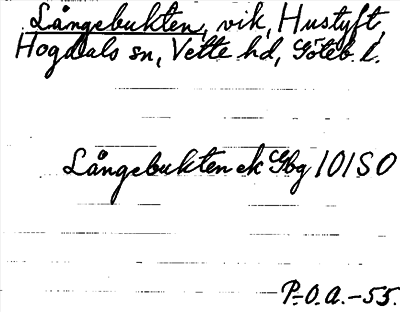 Långebukten, vik, Hustyft,
Hogdals sn, Vette hd, Göteb. l.
Långebukten ek Gbg 101 SO
P.O.A.-55.